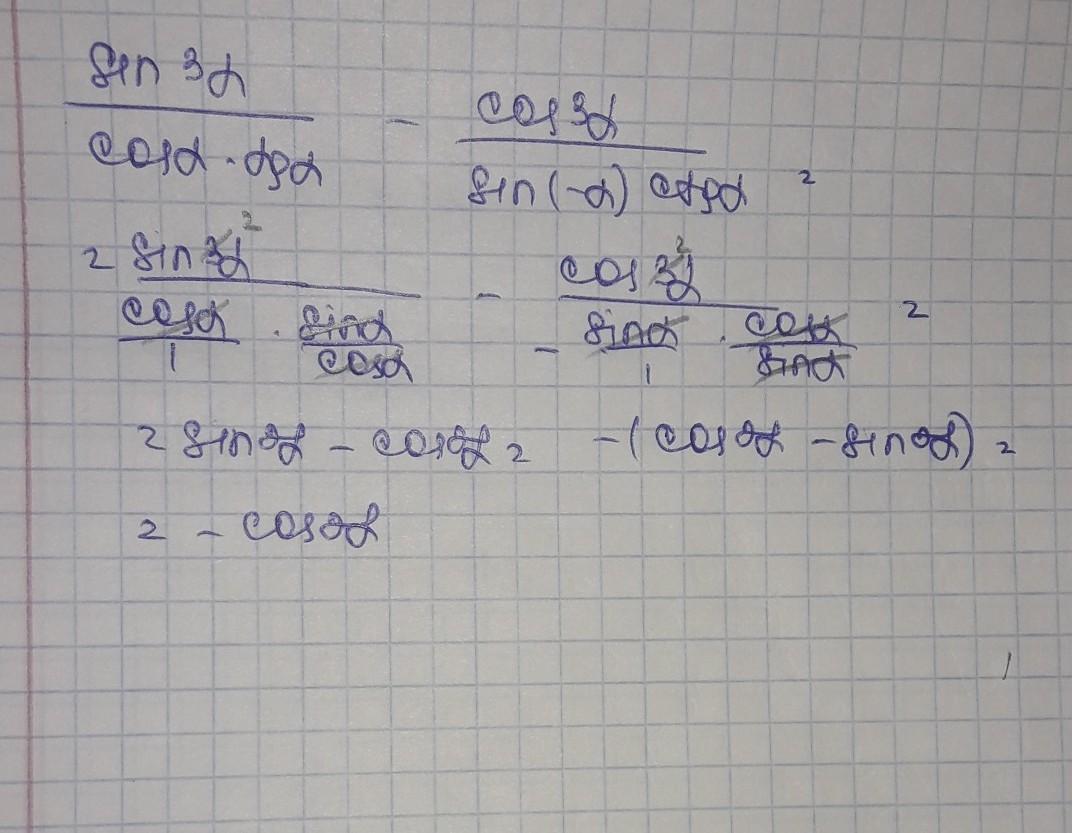 sin 3α / cosα · tgα - cos 3α / sin(-α) ctgα =
= sin 3α 2 / cosα/1 · sinα/cosα - cos 3α 2 / - sinα/1 · cosα/sinα =
= sin2α - cos2α = -(cos2α - sin2α) =
= - cos2α